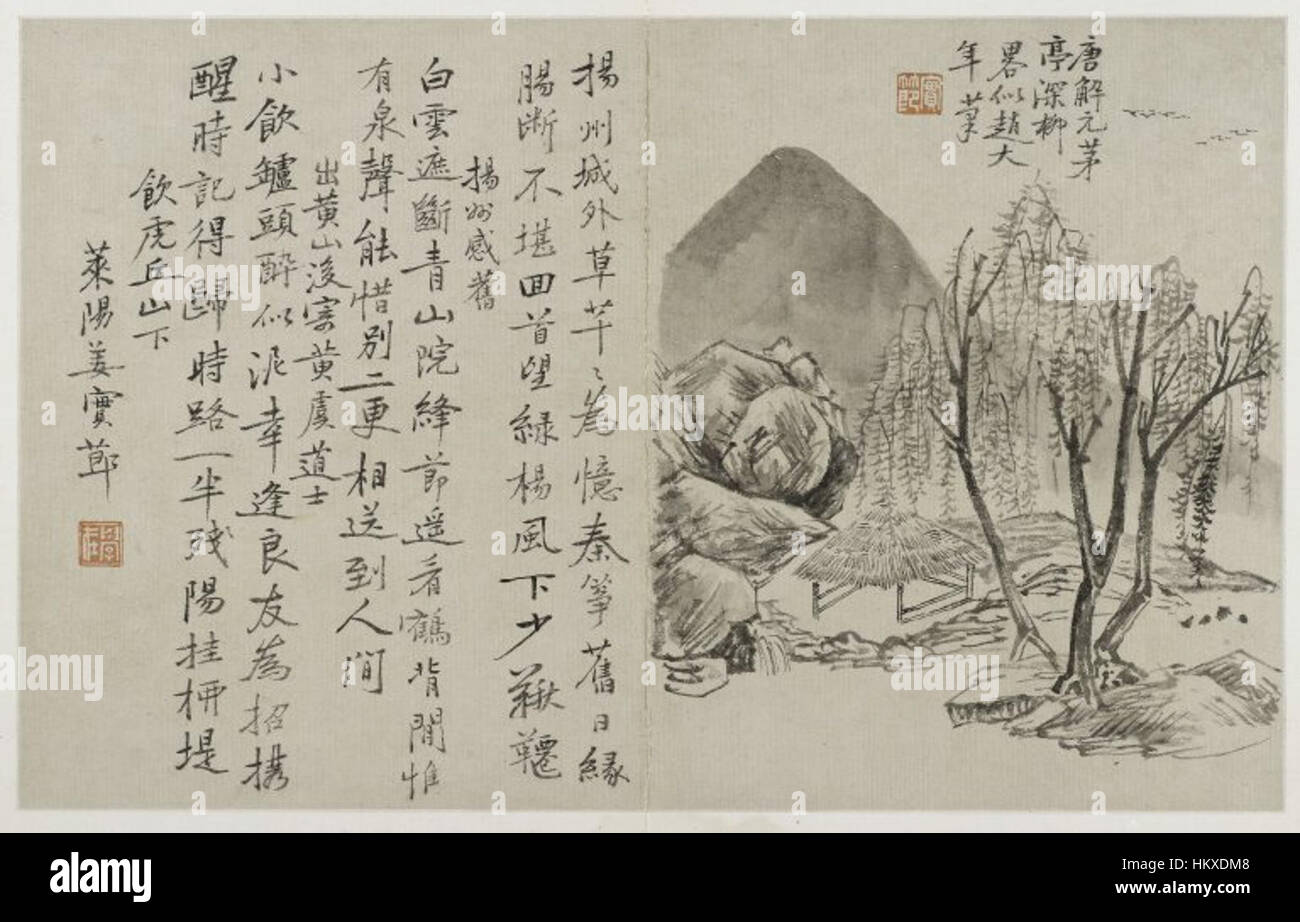 唐解元茅
亭深柳
畧似趙大
年筆
實節
揚州城外草芊〻為憶秦箏舊日緣
腸斷不堪回首望緑楊風下少鞦韆
揚州感舊
白雲遮斷青山院絳節遥看鶴背閒惟
有泉聲能惜別二更相送到人間
出黄山後寄黄虞道士
小飲鑪頭醉似泥幸逢良友為招携
醒時記得歸時路一半残陽挂柳堤
飲虎丘山下
萊陽姜實節
alamy
a
alamy stock photo
HKXDM8
www.alamy.com